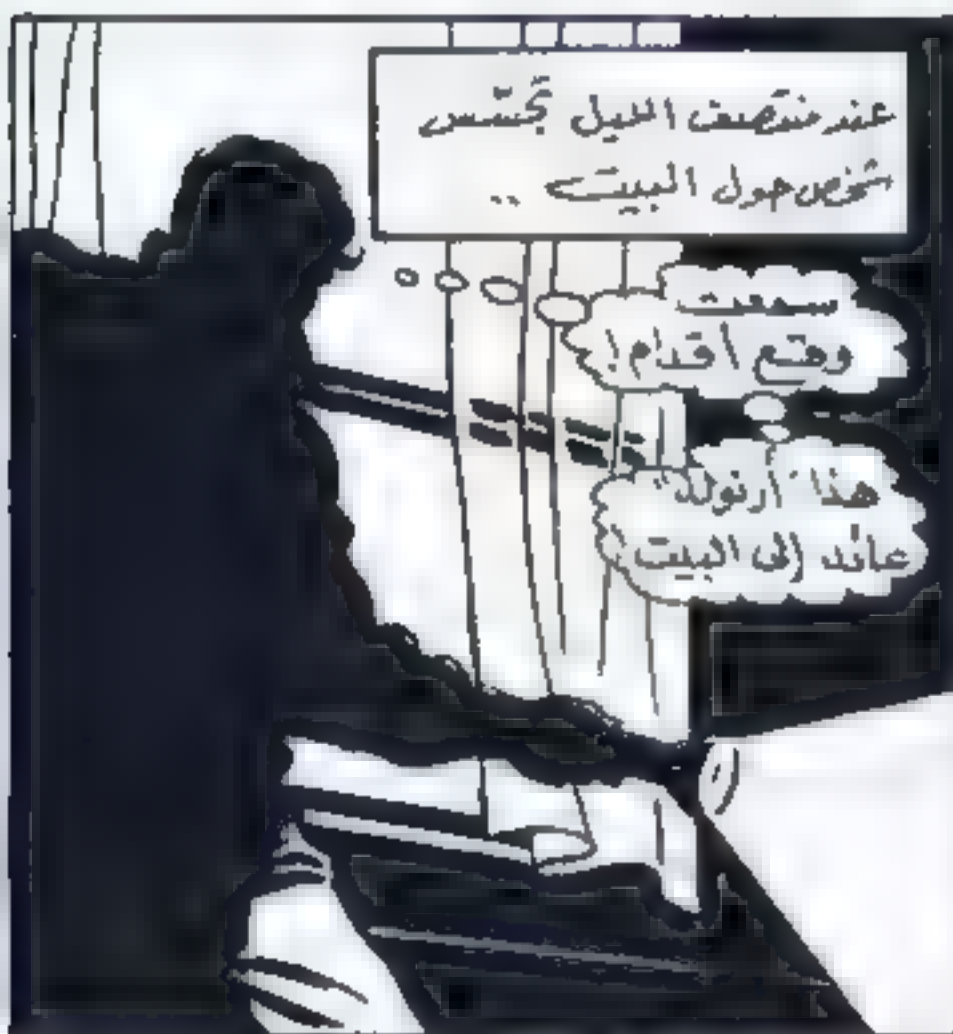 عند منتصف الليل تجسّس
شخص حول البيت ..
سمعت
وقع أقدام !
هذا أرنولد
عائد إلى البيت !